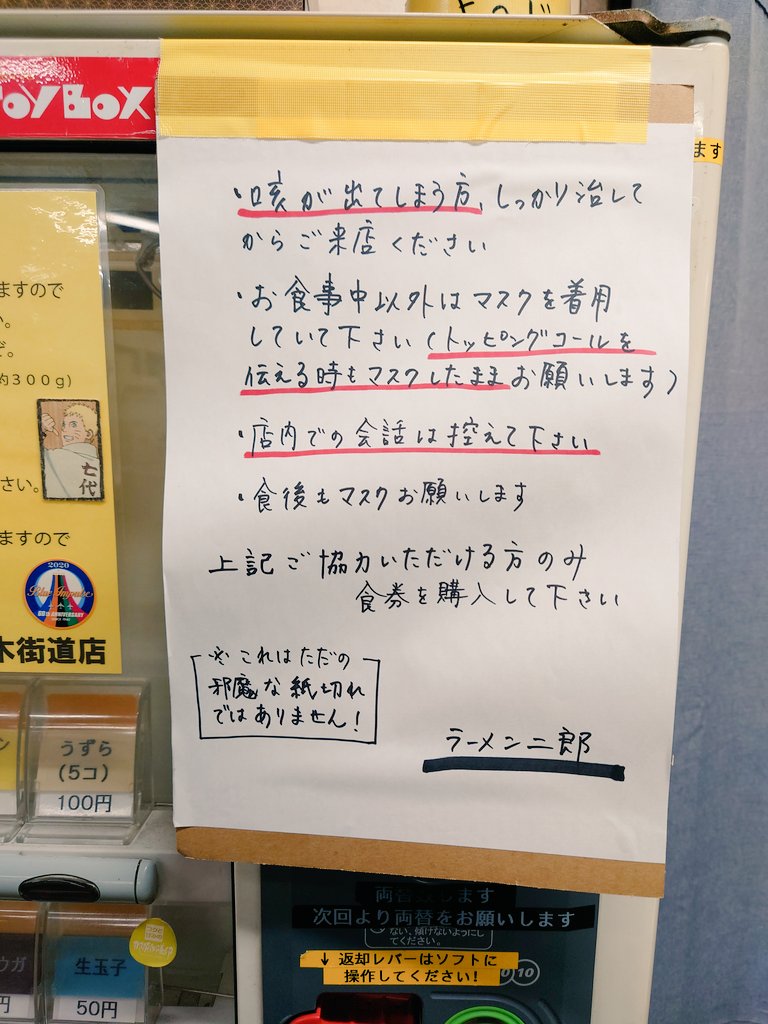 TOYBOX
ます
・咳が出てしまう方、しっかり治して
からご来店ください
・お食事中以外はマスクを着用
していて下さい(トッピングコールを
伝える時もマスクしたままお願いします)
・店内での会話は控えて下さい
・食後もマスクお願いします
上記ご協力いただける方のみ
食券を購入して下さい
※これはただの
邪魔な紙切れ
ではありません!
ラーメン二郎
ますので
約300g)
七代
さい。
ますので
2020
Blue Impulse
60th ANNIVERSARY
木街道店
うずら
(5コ)
100円
ウガ
円
生玉子
50円
します
次回より両替をお願いします
ない、傾けないようにし
てください。
↓返却レバーはソフトに
操作してください!
10